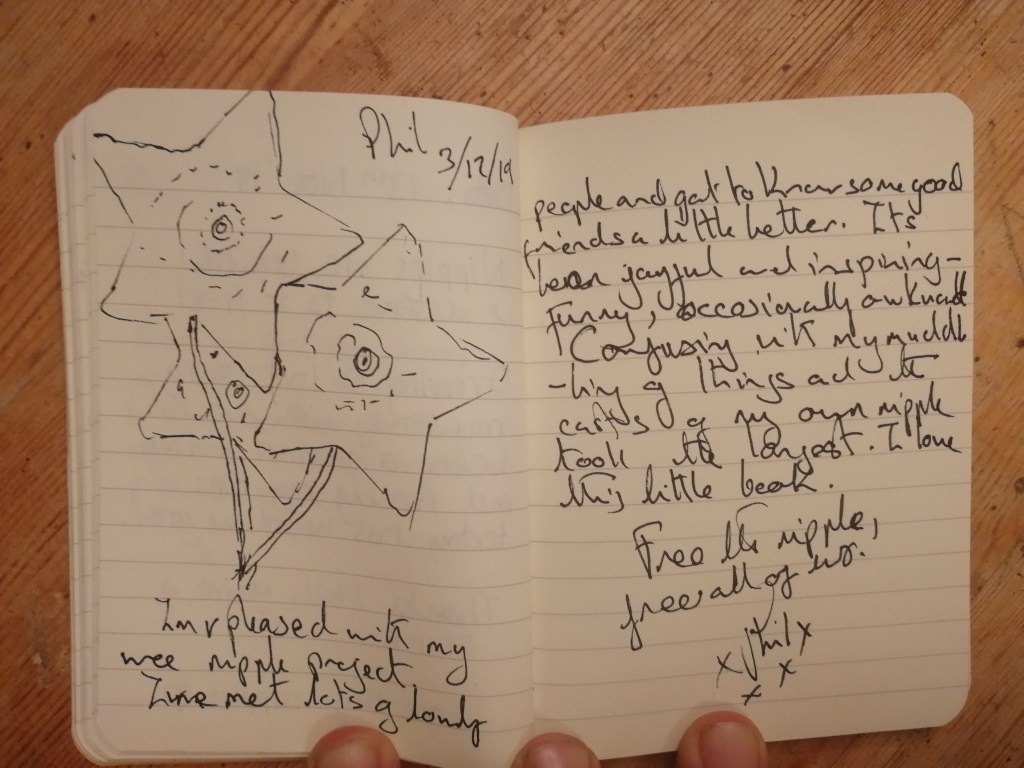 Phil
3/12/19
I'm pleased with my
wee nipple project
I've met lots of lovely
people and got to know some good
friends a little better. It's
been joyful and inspiring -
funny, occasionally awkward
Confusing with my muddl
-ling of things and the
casts of my own nipple
took the longest. I love
this little book.
Free the nipple,
free all of us.
Phil x
x x
x